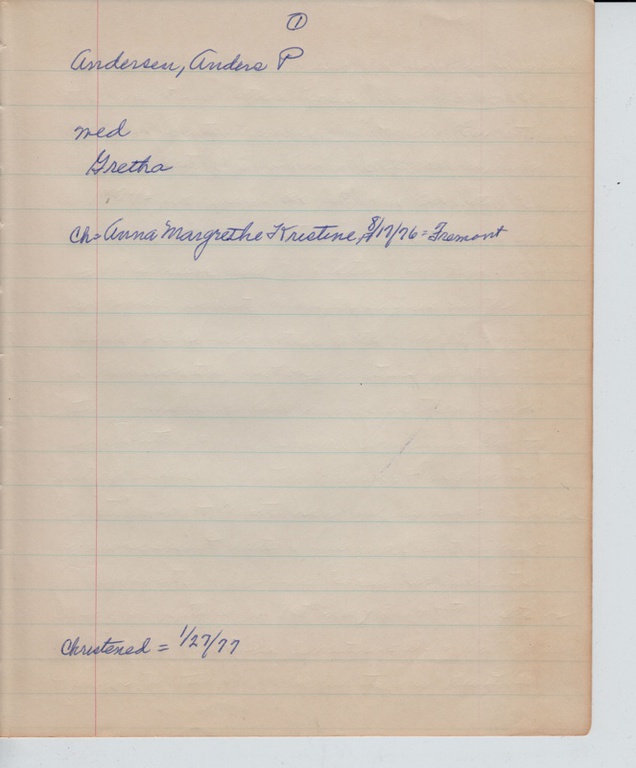 ①
Andersen, Anders P
med
Gretha
Ch= Anna Margrethe Kristine, 8/17/76 = Fremont
Christened = 1/27/77